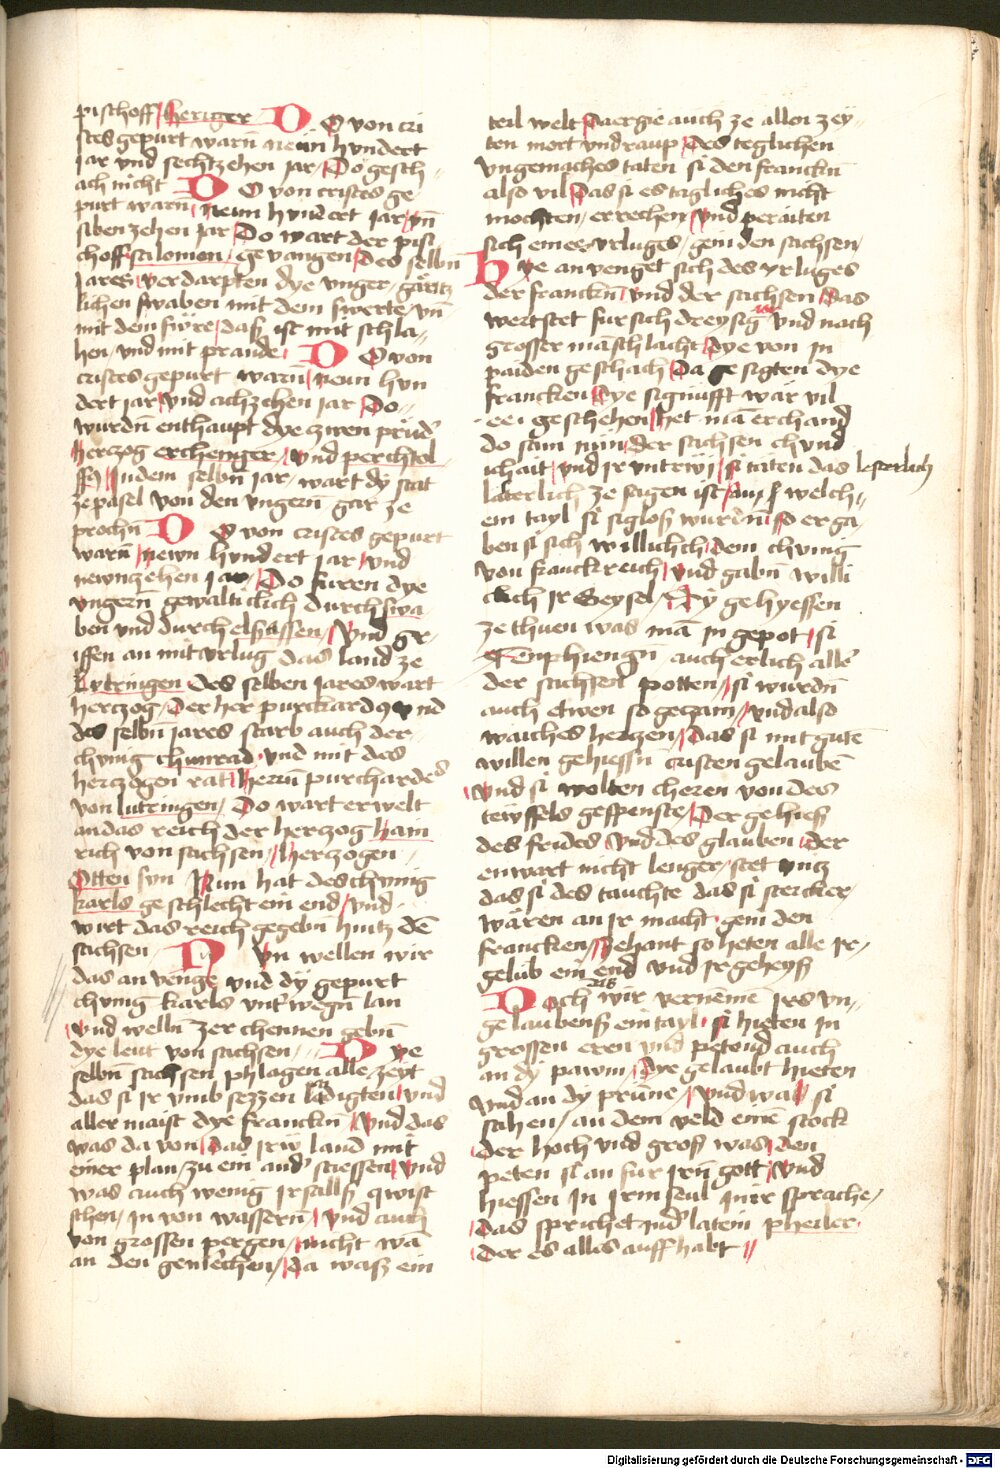 pischoff heriger D O von cri
stes gepurt warn neun hundert
jar und sechtzehen jar Do gesch
ach nicht D O von cristes ge
purt warn neun hundert jar vn̄
siben zehen jar Do wart der pisch
choff salomon gevangen des selbn̄
jares verdarpten dye vnger gantz
lichen swaben mit dem swerte vn̄
mit dem fiwre daß ist mit schla
hen vnd mit prande D O von
cristes gepurt warn̄ neun hun
dert jar vnd achzehen jar Do
wurdn̄ enthaupt dye zwen prud'
herzog erchenger vnd perchtol
In dem selbn̄ jar wart dy stat
ze pasel von den vngern̄ gar ze
prochn̄ D O von cristes gepurt
warn̄ newn hundert jar vnd
newnzehen jar Do furen dye
vngern̄ gewaltichlich durch swa
ben vnd durch elsassen Vnd gr
iffen an mit vrlug das land ze
lutringen des selben jares wart
herczog der her purckard vnd
des selbn̄ jares starb auch der
chunig chunrad vnd mit des
herczogen rat herrn̄ purchardes
von lutringen Do wart erwelt
an das reich der herzog hain
rich von sachsen hertzogen
Otten sun Nun hat des chunig
karls geschlecht ein end vnd
wirt das reich gegebn̄ hintz dē
sachsen N Vn wellen wir
das anvenge vnd dy gepurt
chunig karls vnt' wegn̄ lan
vnd welln̄ zerchennen gebn̄
dye leut von sachsen D ye
selbn̄ sachsen phlagen alle zeyt
das si ir vmb sezzen ledigten vnd
aller maist dye franckn̄ Vnd das
was da von Das irw land mit
einer plan zu ein and' stiessen vnd
was auch wenig irsallß zwist
schen in von wassern̄ Vnd auch
von grossen pergen nicht wā
an den genlechen Da waß ein
teil welt Da ergie auch ze allen zey
ten mort vnd raup Des teglichen
vngemaches taten si den franckn̄
also vil Das si es tagliches nicht
mochten errechen Vnd peraiten
sich eines vrluges gein den sachsen
H ye anvenget sich des vrluges
der franckn̄ vnd der sachsen Das
wert stet fur sich dreysig iar vnd nach
grosser manschlacht Dye von in
paiden geschach Da gesigten dye
francken Dye signufft wär vil
ee geschehen Het mā erchand
do sam nun der sachsen chund
ichait vnd ir vntriwi si täten das lesterlich
lasterlich ze sagen ist auf welch
ein tayl si sigloß wurdn̄ So erga
ben si sich willichlich dem chunig
von franckreich Vnd gabn̄ willi
clich ir Geysel Dy gehyessen
ze thuen was mā in gepot si
Enphiengn̄ auch erlich alle
der sachsen potten si wurdn̄
auch etwen so gezam vnd also
waiches herczen Das si mit gutē
willen gehiessn̄ cristen gelaubē
Vnd si wolten cheren von des
tewffels gespenste Der gehieß
des frides vnd des glauben der
enwart nicht lenger stet vntz
das si des tauchte das si stercker
wären an ir macht gein den
francken Zehant so heten alle ir
gelub ein end vnd ir geheyß
D och wir vernemē irs vn
gelaubenß ein tayl si hieten in
grossen eren vnd petend auch
an dy pawm Dye gelaubt hieten
Vnd an dy prunē Vnd wa si
sahen an dem veld einē stock
Der hoch vnd groß was den
peten si an fur irn̄ gott Vnd
hiessen in irmseul in ir sprache
Das sprichet in d' latein pheiler
Der es alles auff habt